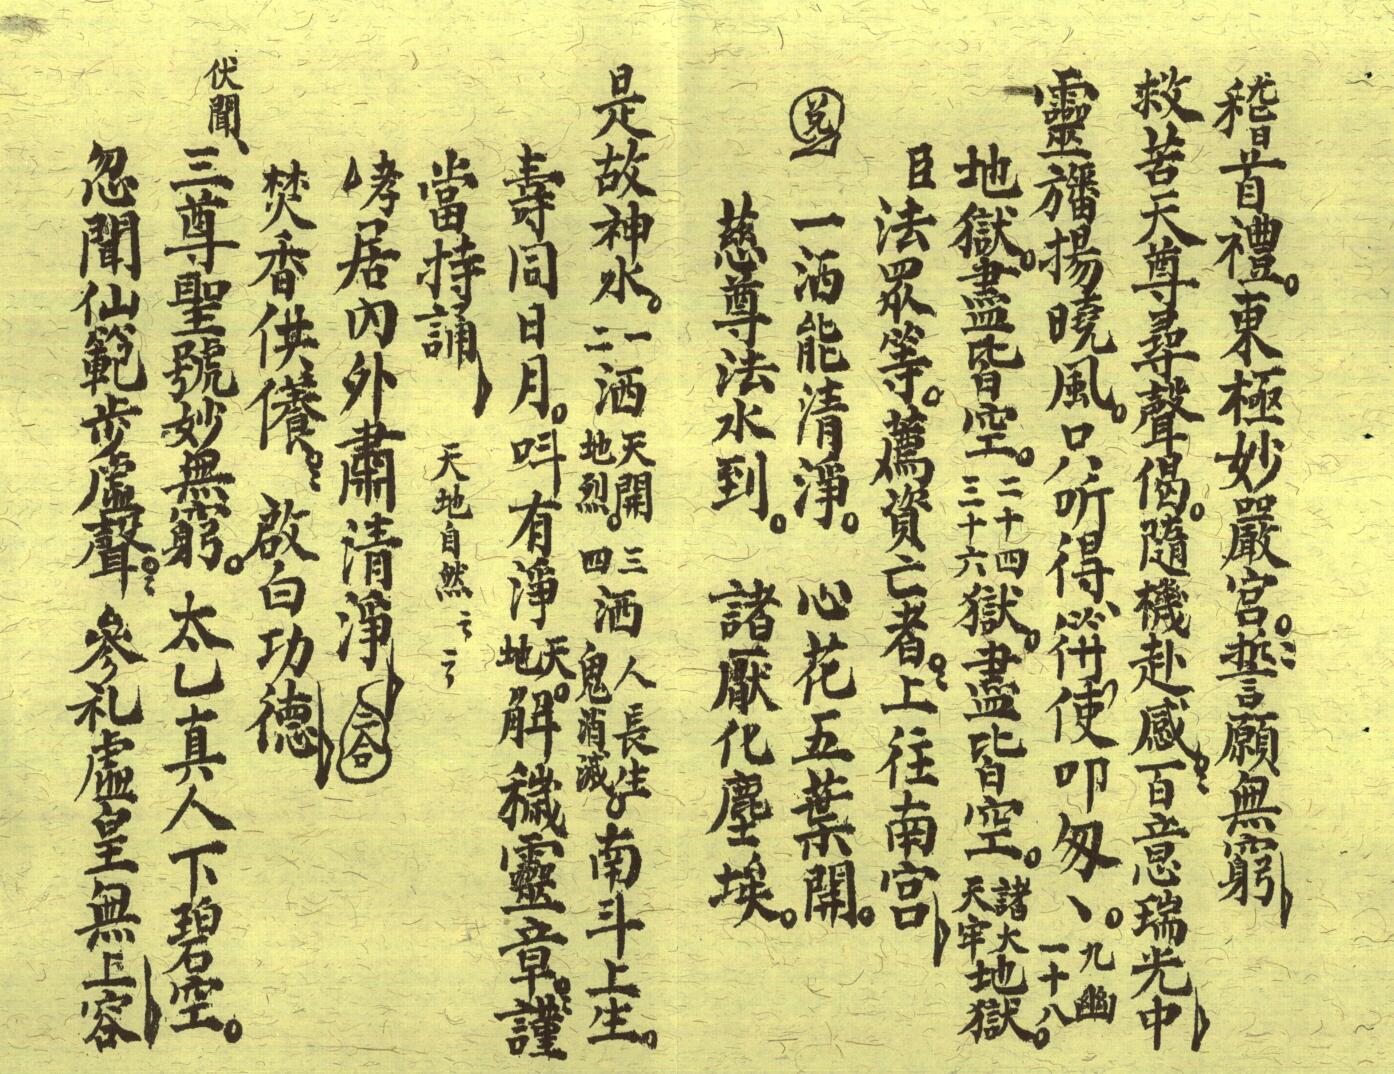 稽首禮。東極妙嚴宮。誓言願無窮
救苦天尊尋聲偈。隨機赴感百意瑞光中
靈旛揚曉風。只听得 使叩匆、。九幽一十八
地獄。盡皆空。二十四三十六獄。盡皆空。諸大天牢地獄。
臣法眾等。薦資亡者。上往南宮
兑 一洒能清淨。 心花五葉開。
慈尊法水到。 諸厭化塵埃。
是故神水。一二洒天開地烈。三四洒人長生鬼消滅。南斗上生。
壽同日月。呌有淨天地。解穢靈章。謹
當持誦 天地自然
孝居內外肅清淨 二合
焚香供養。 啟白功德
伏聞 三尊聖號妙無窮。太乙真人下碧空。
忽聞仙範步虛聲。參礼虛皇無上容